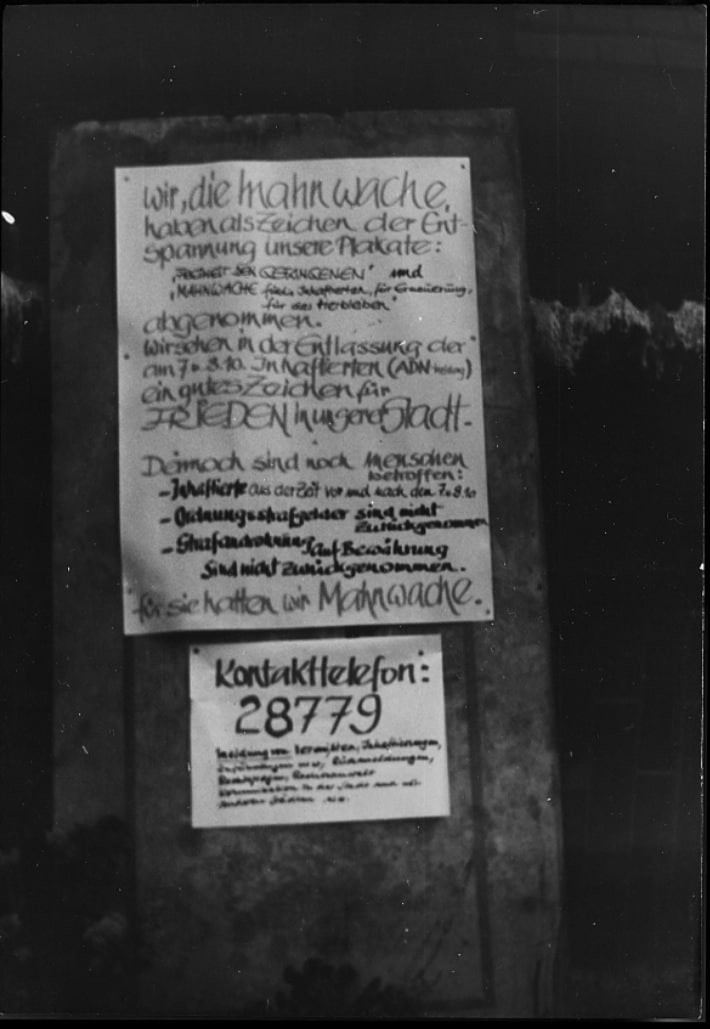 wir, die Mahnwache,
haben als Zeichen der Ent-
spannung unsere Plakate:
"FREIHEIT DEN GEFANGENEN" und
"MAHNWACHE für d. Inhaftierten, für Erneuerung,
für das Hierbleiben"
abgenommen.
Wir sehen in der Entlassung der
am 7. u. 8.10. Inhaftierten (ADN-Meldung)
ein gutes Zeichen für
FRIEDEN in unserer Stadt.
Dennoch sind noch Menschen
betroffen:
- Inhaftierte aus der Zeit vor und nach den 7. u. 8.10
- Ordnungsstrafgelder sind nicht
zurückgenommen
- Strafandrohung auf Bewährung
sind nicht zurückgenommen.
für sie halten wir Mahnwache.
Kontakttelefon:
28779
Meldung von Vermißten, Inhaftierungen,
Rückmeldungen,
Rechtsanwalt
Kommunikation in der Stadt und mit
anderen Städten